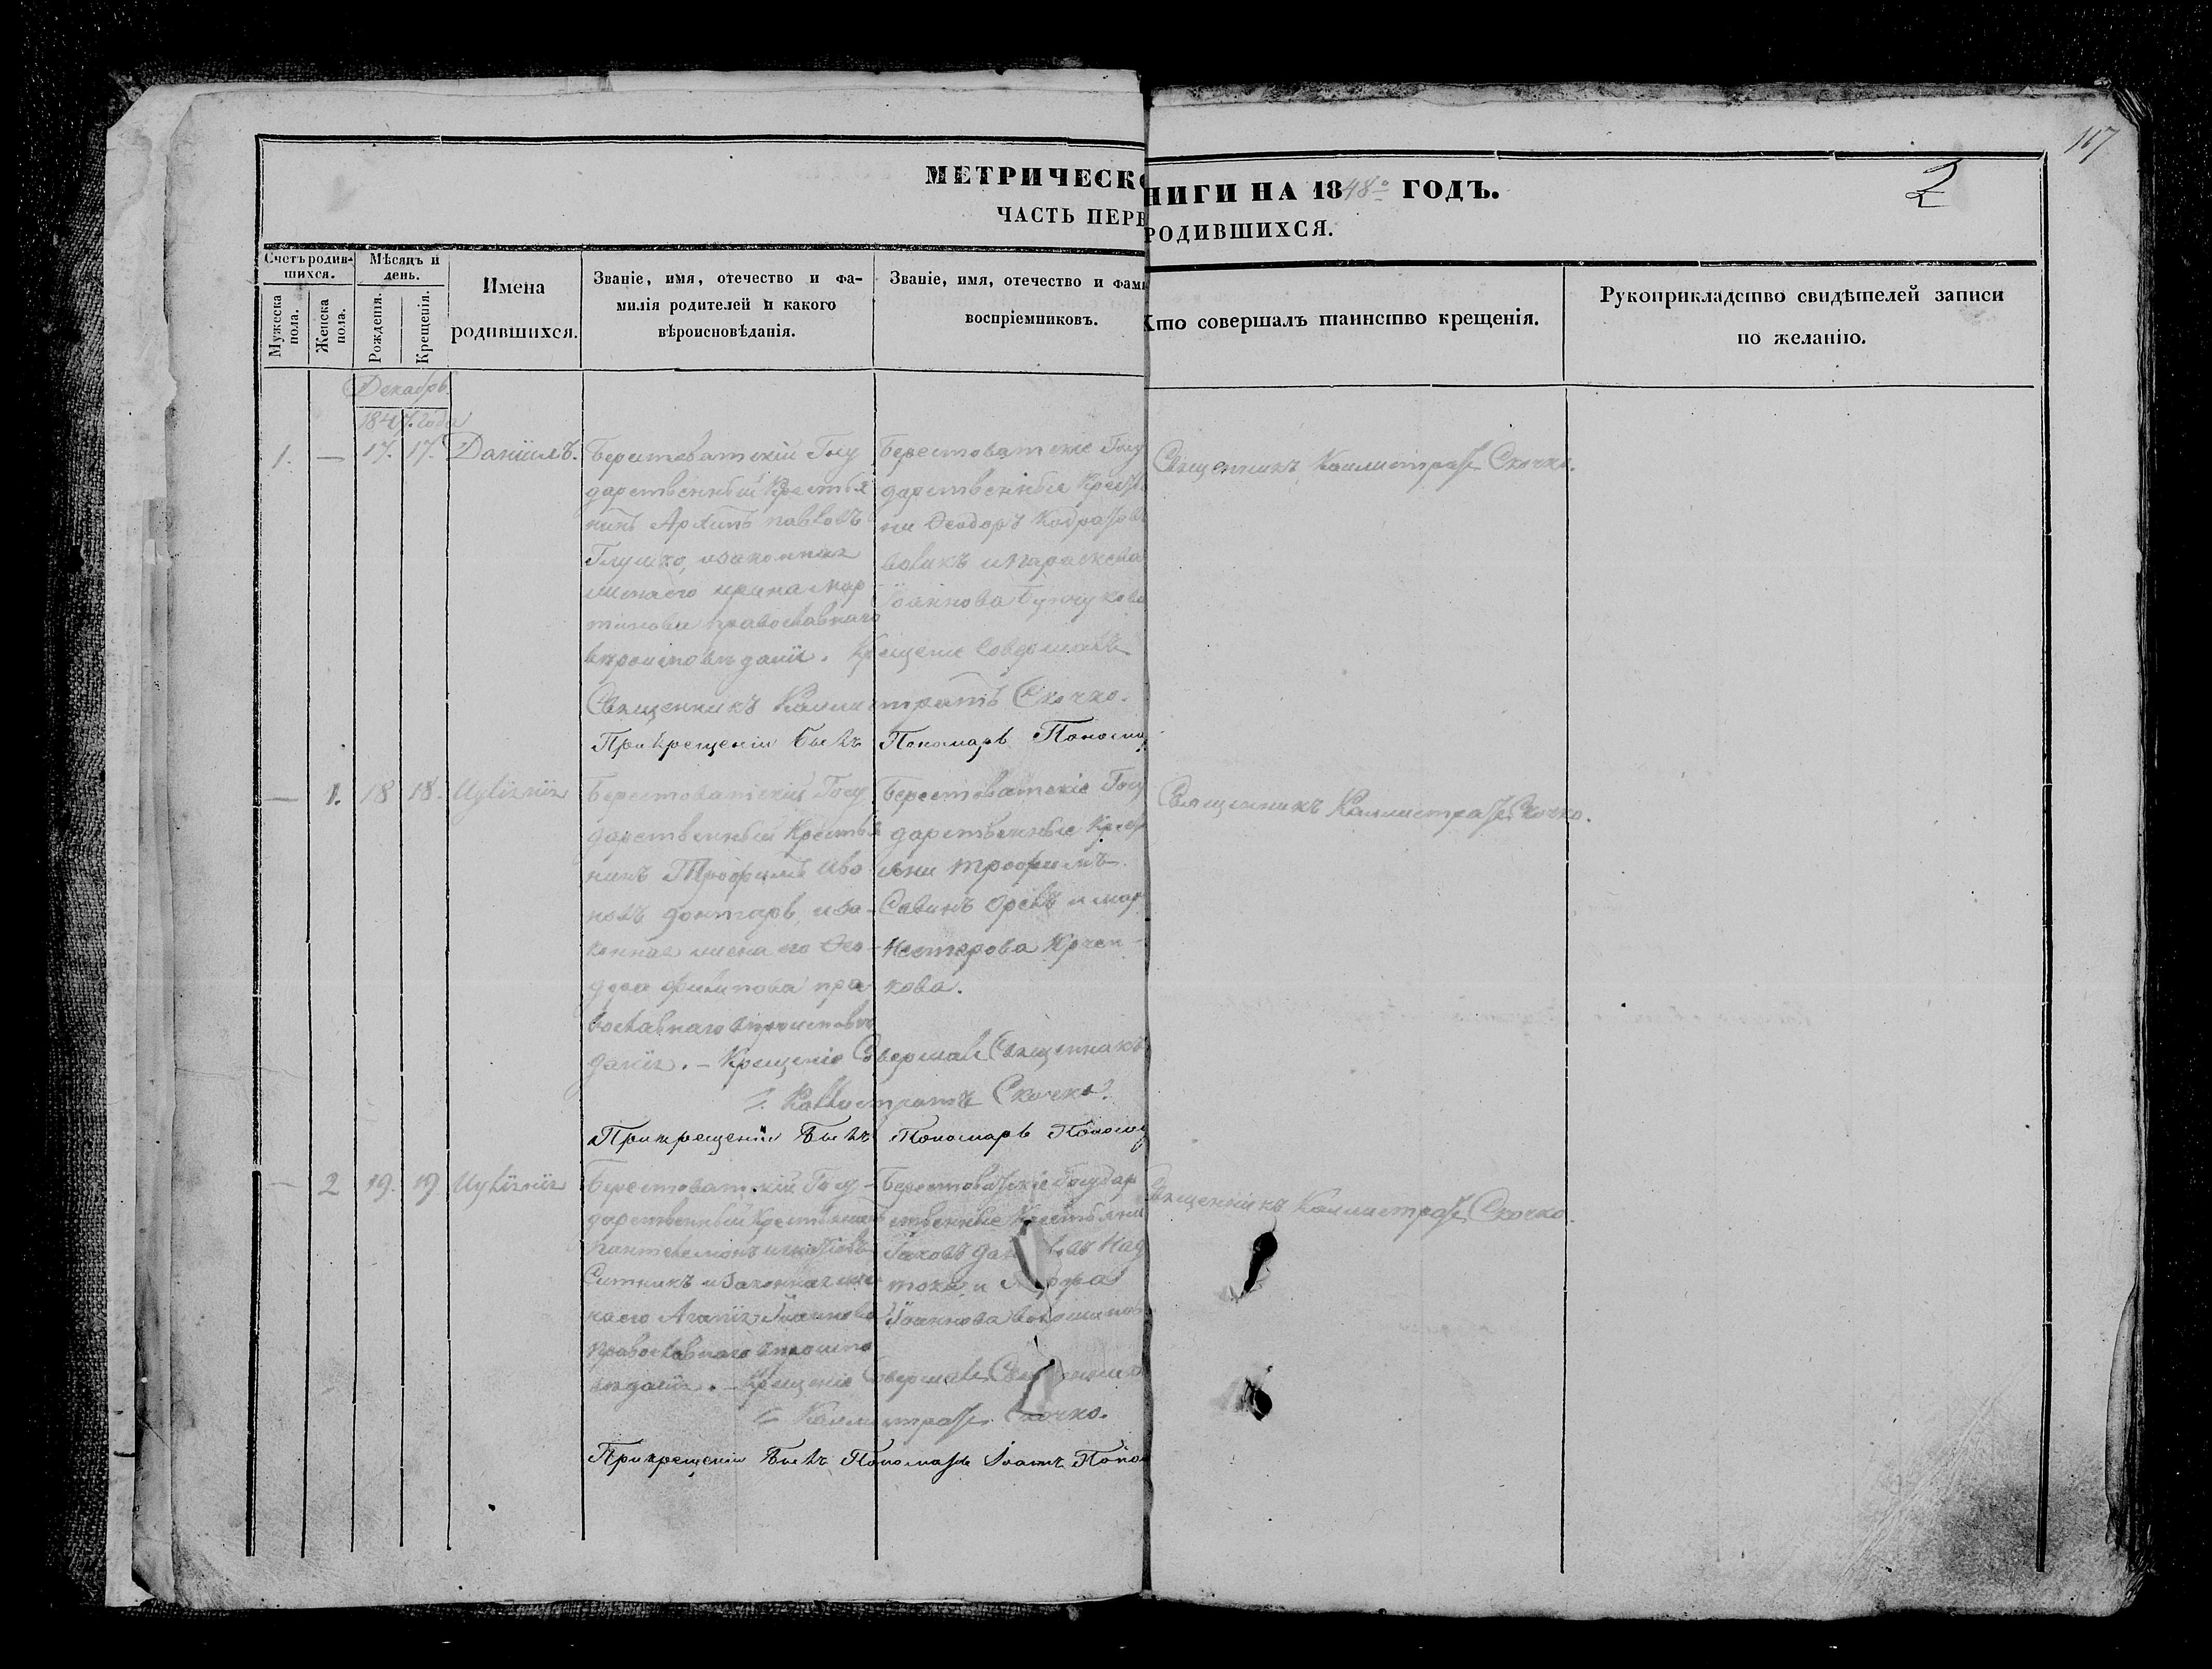 117
2
МЕТРИЧЕСКО
НИГИ НА 1848º ГОДЪ.
ЧАСТЬ ПЕРВ
РОДИВШИХСЯ.
Счетъ родив-
шихся.
Мужеска пола.
Женска пола.
Мѣсяцъ и
день.
Рожденія.
Крещенія.
Имена
родившихся.
Званіе, имя, отечество и фа-
милія родителей и какого
вѣроисповѣданія.
Званіе, имя, отечество и фами
воспріемниковъ.
Кто совершалъ таинство крещенія.
Рукоприкладство свидѣтелей записи
по желанію.
Декабрь
1847. года
1. — 17. 17. Даніилъ.
Берестоватскій Госу
дарственный Крестья
нинъ Архипъ павловъ
Глушко, изаконная
женаего ирина Мар
тинова православнаго
вѣроисповѣданія. Крещеніе Совершалъ
Священникъ Каллистратъ Скочко.
При крещеніи былъ Пономарь Поном
Берестоватскіе Госу
дарственные Крест
ни Ѳеодоръ
и параскева
Іоаннова
Священникъ Каллистратъ Скочко.
— 1. 18 18. Иуліянія
Берестоватскій Госу
дарственный Крестья
нинъ Трофимъ Ива
новъ доктаръ, иза
конная жена его Ѳео
дора Филипова пра
вославнаго вѣроисповѣ
данія. – Крещеніе Совершалъ Священникъ
Каллистратъ Скочко.
При крещеніи былъ Пономарь Поном
Берестоватскіе Госу
дарственные Крест
яни трофимъ
Савинъ и мар
Нестерова
кова.
Священникъ Каллистратъ Скочко.
— 2 19. 19 Иуліянія
Берестоватскій Госу-
дарственный Крестьянинъ
Пантелемонъ
Ситникъ изаконная же
наего Агапія Іоаннова
Православнаго вѣроиспо
вѣданія. – Крещеніе Совершалъ Священник
Каллистратъ Скочко.
При крещеніи былъ Пономарь Іоаннъ Поно
Берестоватскіе Государ
ственные Крестьяни
Іаковъ
тока и
Іоаннова
Священникъ Каллистратъ Скочко.